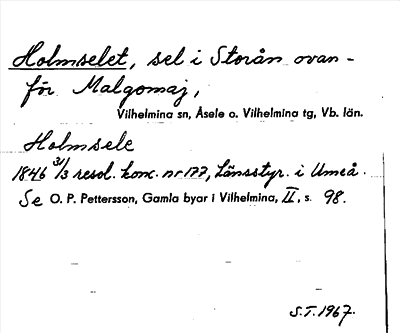 Holmselet, sel i Storån ovan-
för Malgomaj,
Vilhelmina sn, Åsele o. Vilhelmina tg, Vb. län.
Holmsele
1846 31/3 resol. konc. nr 177, Länsstyr. i Umeå.
Se O. P. Pettersson, Gamla byar i Vilhelmina, II, s. 98.
S.T. 1967.